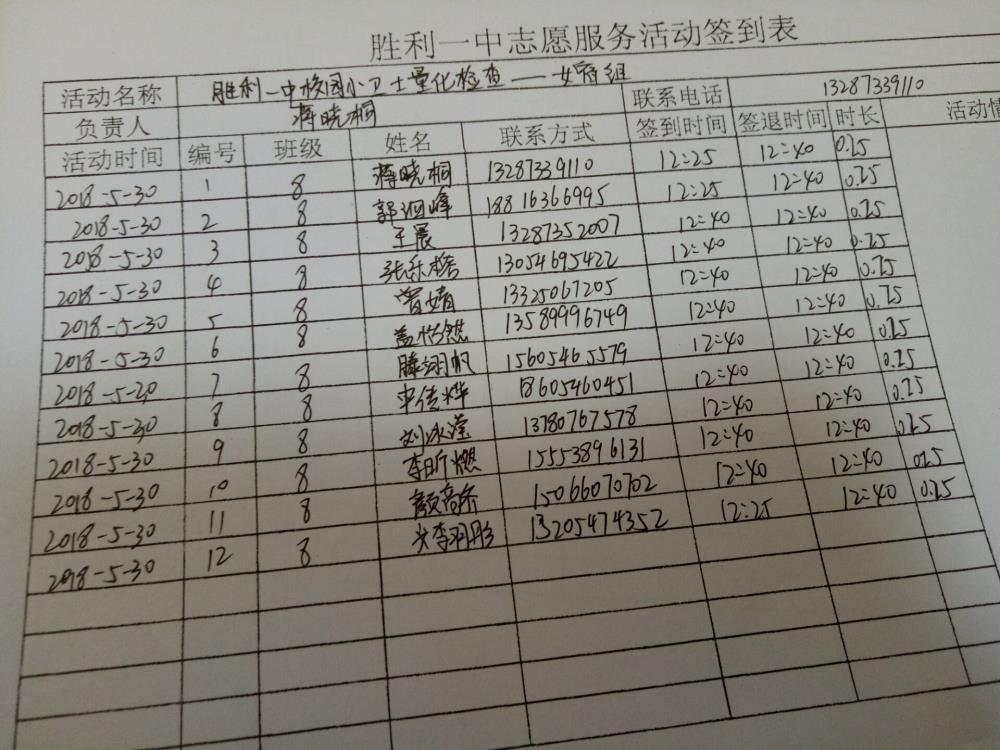 胜利一中志愿服务活动签到表
活动名称 胜利一中校园小卫士量化检查——女宿组 联系电话 13287339110
负责人 蒋晓桐 签到时间 签退时间 时长 活动情
活动时间 编号 班级 姓名 联系方式
2018-5-30 1 8 蒋晓桐 13287339110 12:25 12:40 0.25
2018-5-30 2 8 郭泗峰 18816366995 12:25 12:40 0.25
2018-5-30 3 8 王晨 13287352007 12:40 12:40 0.25
2018-5-30 4 8 张乐 13054695422 12:40 12:40 0.25
2018-5-30 5 8 曾婧 13325067205 12:40 12:40 0.25
2018-5-30 6 8 盖怡然 13589996749 12:40 12:40 0.25
2018-5-20 7 8 滕翊帆 15605465579 12:40 12:40 0.25
2018-5-30 8 8 18605460451 12:40 12:40 0.25
2018-5-30 9 8 刘冰滢 13780767578 12:40 12:40 0.25
2018-5-30 10 8 李昕燃 15553896131 12:40 12:40 0.25
2018-5-30 11 8 颜高乔 15066070702 12:40 12:40 0.25
2018-5-30 12 8 尖李羽彤 13205474352 12:25 12:40 0.25